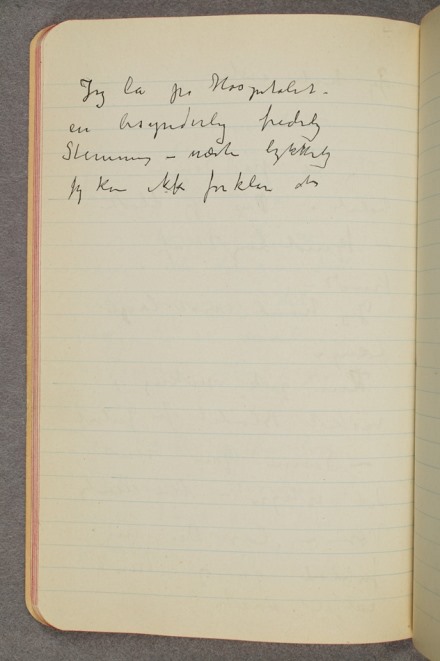 Jeg la på Hospitalet –
en besynderlig fredelig
Stemning – næste lykkelig
Jeg kan ikke forklare det